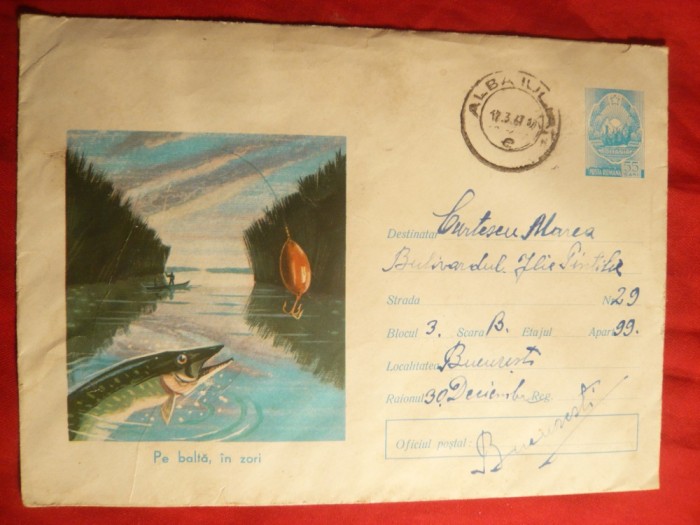 ALBA IULIA
e
POSTA ROMANA 55
Destinatar Curtescu
Bulivardul Ilie Pintilie
Strada Nr. 29
Blocul 3. Scara B. Etajul Apart. 99.
Localitatea București
Raionul 30 Deciembr Reg.
Oficiul poștal: București
Pe baltă, în zori